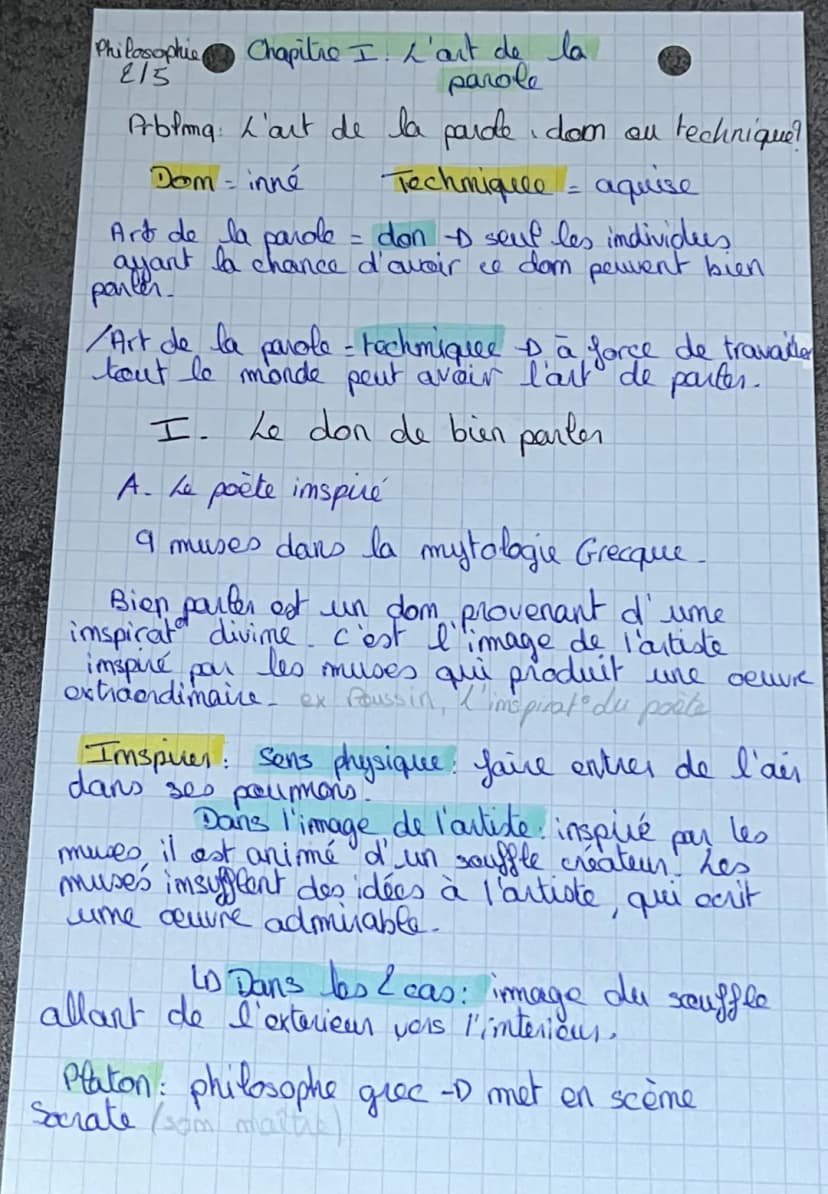 Philosophie Chapitre I : L'art de la
2/5 parole
Prblmq : L'art de la parole, don ou technique?
Don = inné Technique = aquise
Art de la parole = don → seul les individus
ayant la chance d'avoir ce don peuvent bien
parler.
/Art de la parole = technique → à force de travailler
tout le monde peut avoir l'art de parler.
I. Le don de bien parler
A. Le poète inspiré
9 muses dans la mytologie Grecque.
Bien parler est un don provenant d'une
inspirat° divine. C'est l'image de l'artiste
inspiré par les muses qui produit une oeuvre
extraordinaire. ex Poussin, L'inspirat° du poète
Inspirer : Sens physique : faire entrer de l'air
dans ses poumons.
Dans l'image de l'artiste : inspiré par les
muses, il est animé d'un souffle créateur. Les
muses insufflent des idées à l'artiste, qui ecrit
une oeuvre admirable.
↳ Dans les 2 cas : image du souffle
allant de l'exterieur vers l'interieur.
Platon : philosophe grec → met en scène
Socrate (son maître)